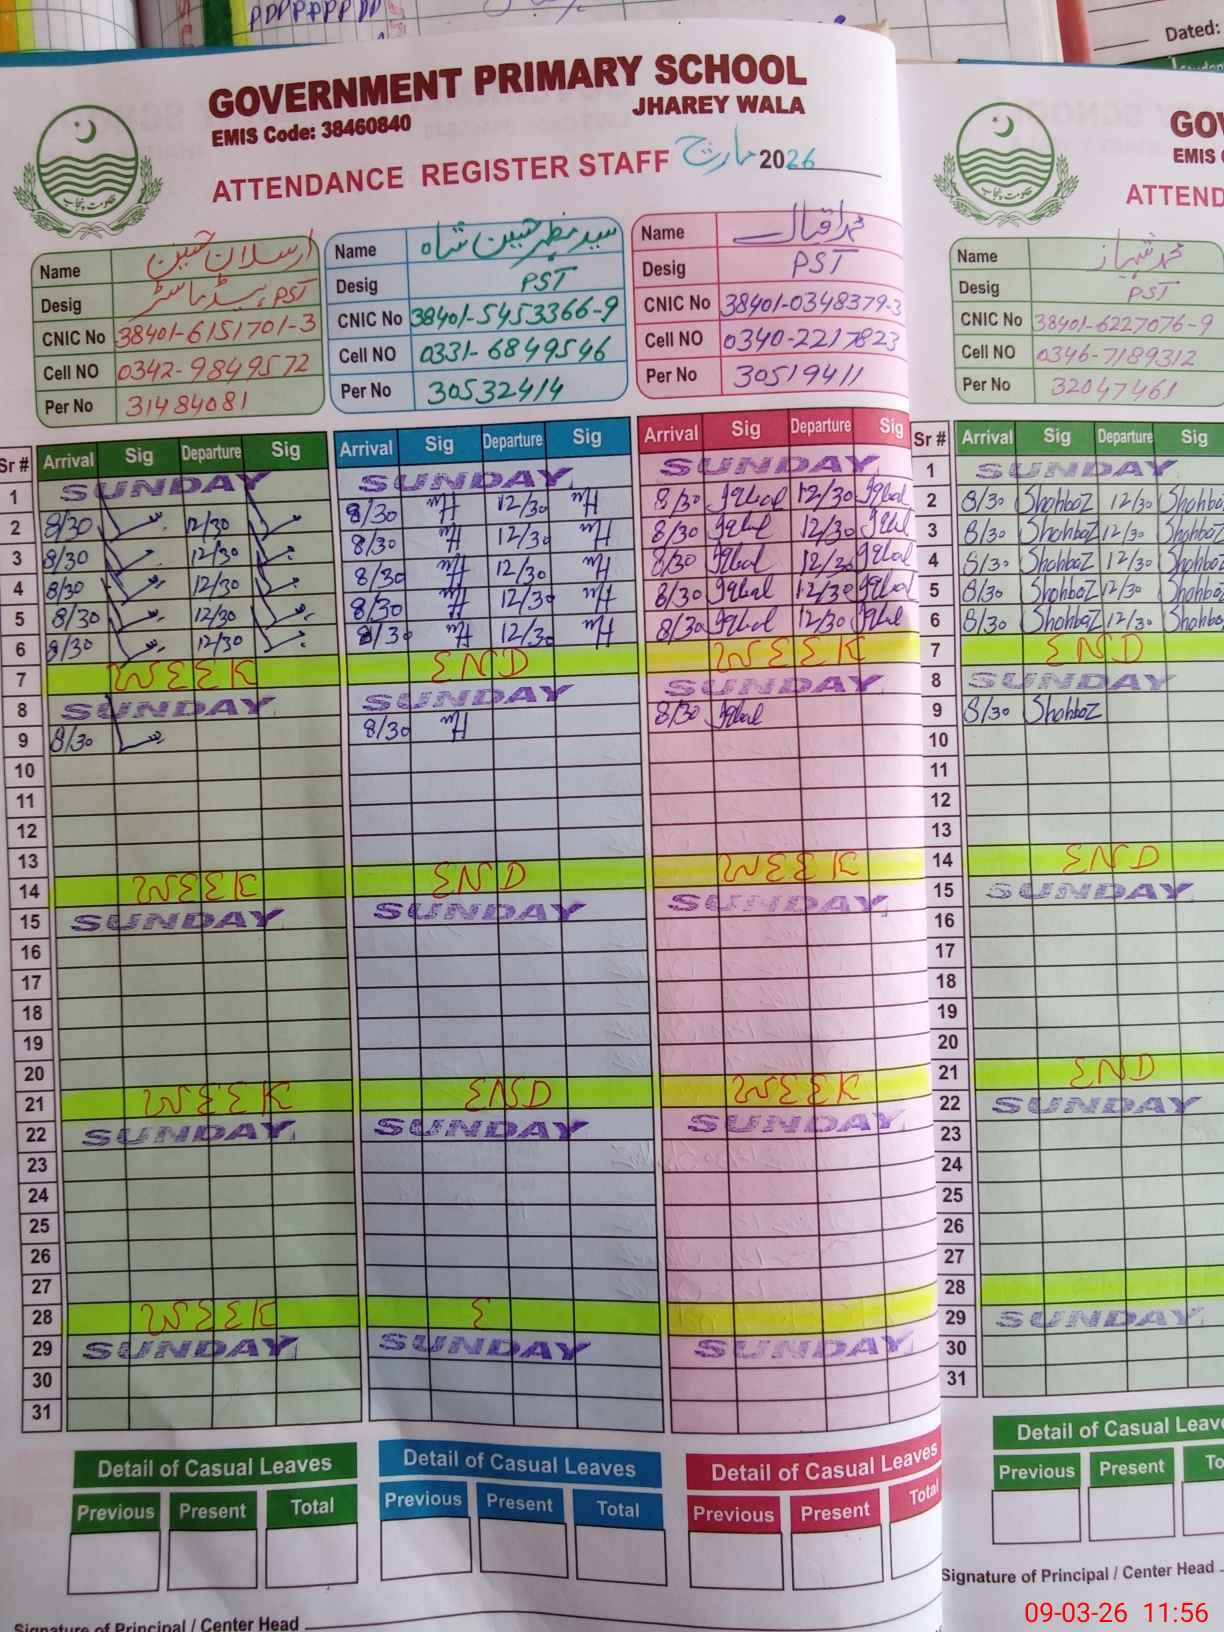 Dated:
GOVERNMENT PRIMARY SCHOOL
JHAREY WALA
EMIS Code: 38460840
ATTENDANCE REGISTER STAFF مارچ 2026
Name ارسلان حسین
Desig PST, ہیڈ ماسٹر
CNIC No 38401-6151701-3
Cell NO 0342-9849572
Per No 31484081
Name سید منظر حسین شاہ
Desig PST
CNIC No 38401-5453366-9
Cell NO 0331-6849546
Per No 30532414
Name محمد اقبال
Desig PST
CNIC No 38401-0348379-3
Cell NO 0340-2217823
Per No 30519411
Sr # Arrival Sig Departure Sig Arrival Sig Departure Sig Arrival Sig Departure Sig
1 SUNDAY SUNDAY SUNDAY
2 8/30 12/30 8/30 12/30 8/30 Iqbal 12/30 Iqbal
3 8/30 12/30 8/30 12/30 8/30 Iqbal 12/30 Iqbal
4 8/30 12/30 8/30 12/30 8/30 Iqbal 12/30 Iqbal
5 8/30 12/30 8/30 12/30 8/30 Iqbal 12/30 Iqbal
6 8/30 12/30 8/30 12/30 8/30 Iqbal 12/30 Iqbal
7 WEEK END WEEK
8 SUNDAY SUNDAY SUNDAY
9 8/30 8/30 8/30 Iqbal
10
11
12
13
14 WEEK END WEEK
15 SUNDAY SUNDAY SUNDAY
16
17
18
19
20
21 WEEK END WEEK
22 SUNDAY SUNDAY SUNDAY
23
24
25
26
27
28 WEEK E
29 SUNDAY SUNDAY SUNDAY
30
31
Detail of Casual Leaves Detail of Casual Leaves Detail of Casual Leaves
Previous Present Total Previous Present Total Previous Present Total
Signature of Principal / Center Head
GOV
EMIS C
ATTEND
Name محمد شہباز
Desig PST
CNIC No 38401-6227076-9
Cell NO 0346-7189312
Per No 32047461
Sr # Arrival Sig Departure Sig
1 SUNDAY
2 8/30 Shahbaz 12/30 Shahba
3 8/30 Shahbaz 12/30 Shahbaz
4 8/30 Shahbaz 12/30 Shahba
5 8/30 Shahbaz 12/30 Shahba
6 8/30 Shahbaz 12/30 Shahba
7 END
8 SUNDAY
9 8/30 Shahbaz
10
11
12
13
14 END
15 SUNDAY
16
17
18
19
20
21 END
22 SUNDAY
23
24
25
26
27
28
29 SUNDAY
30
31
Detail of Casual Leav
Previous Present To
Signature of Principal / Center Head
09-03-26 11:56